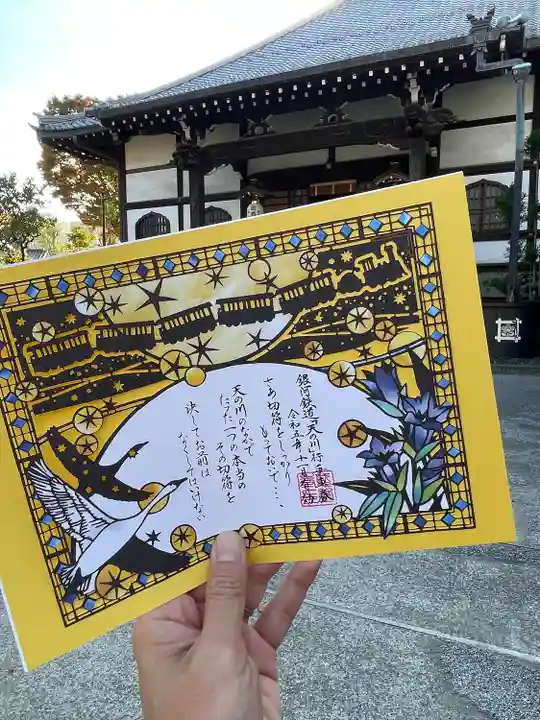 銀河鉄道「天の川」行
令和五年十一月
さあ切符をしっかり
もっておいで…。
天の川のなかで
たった一つの本当の
その切符を
決しておまえは
なくしてはいけない